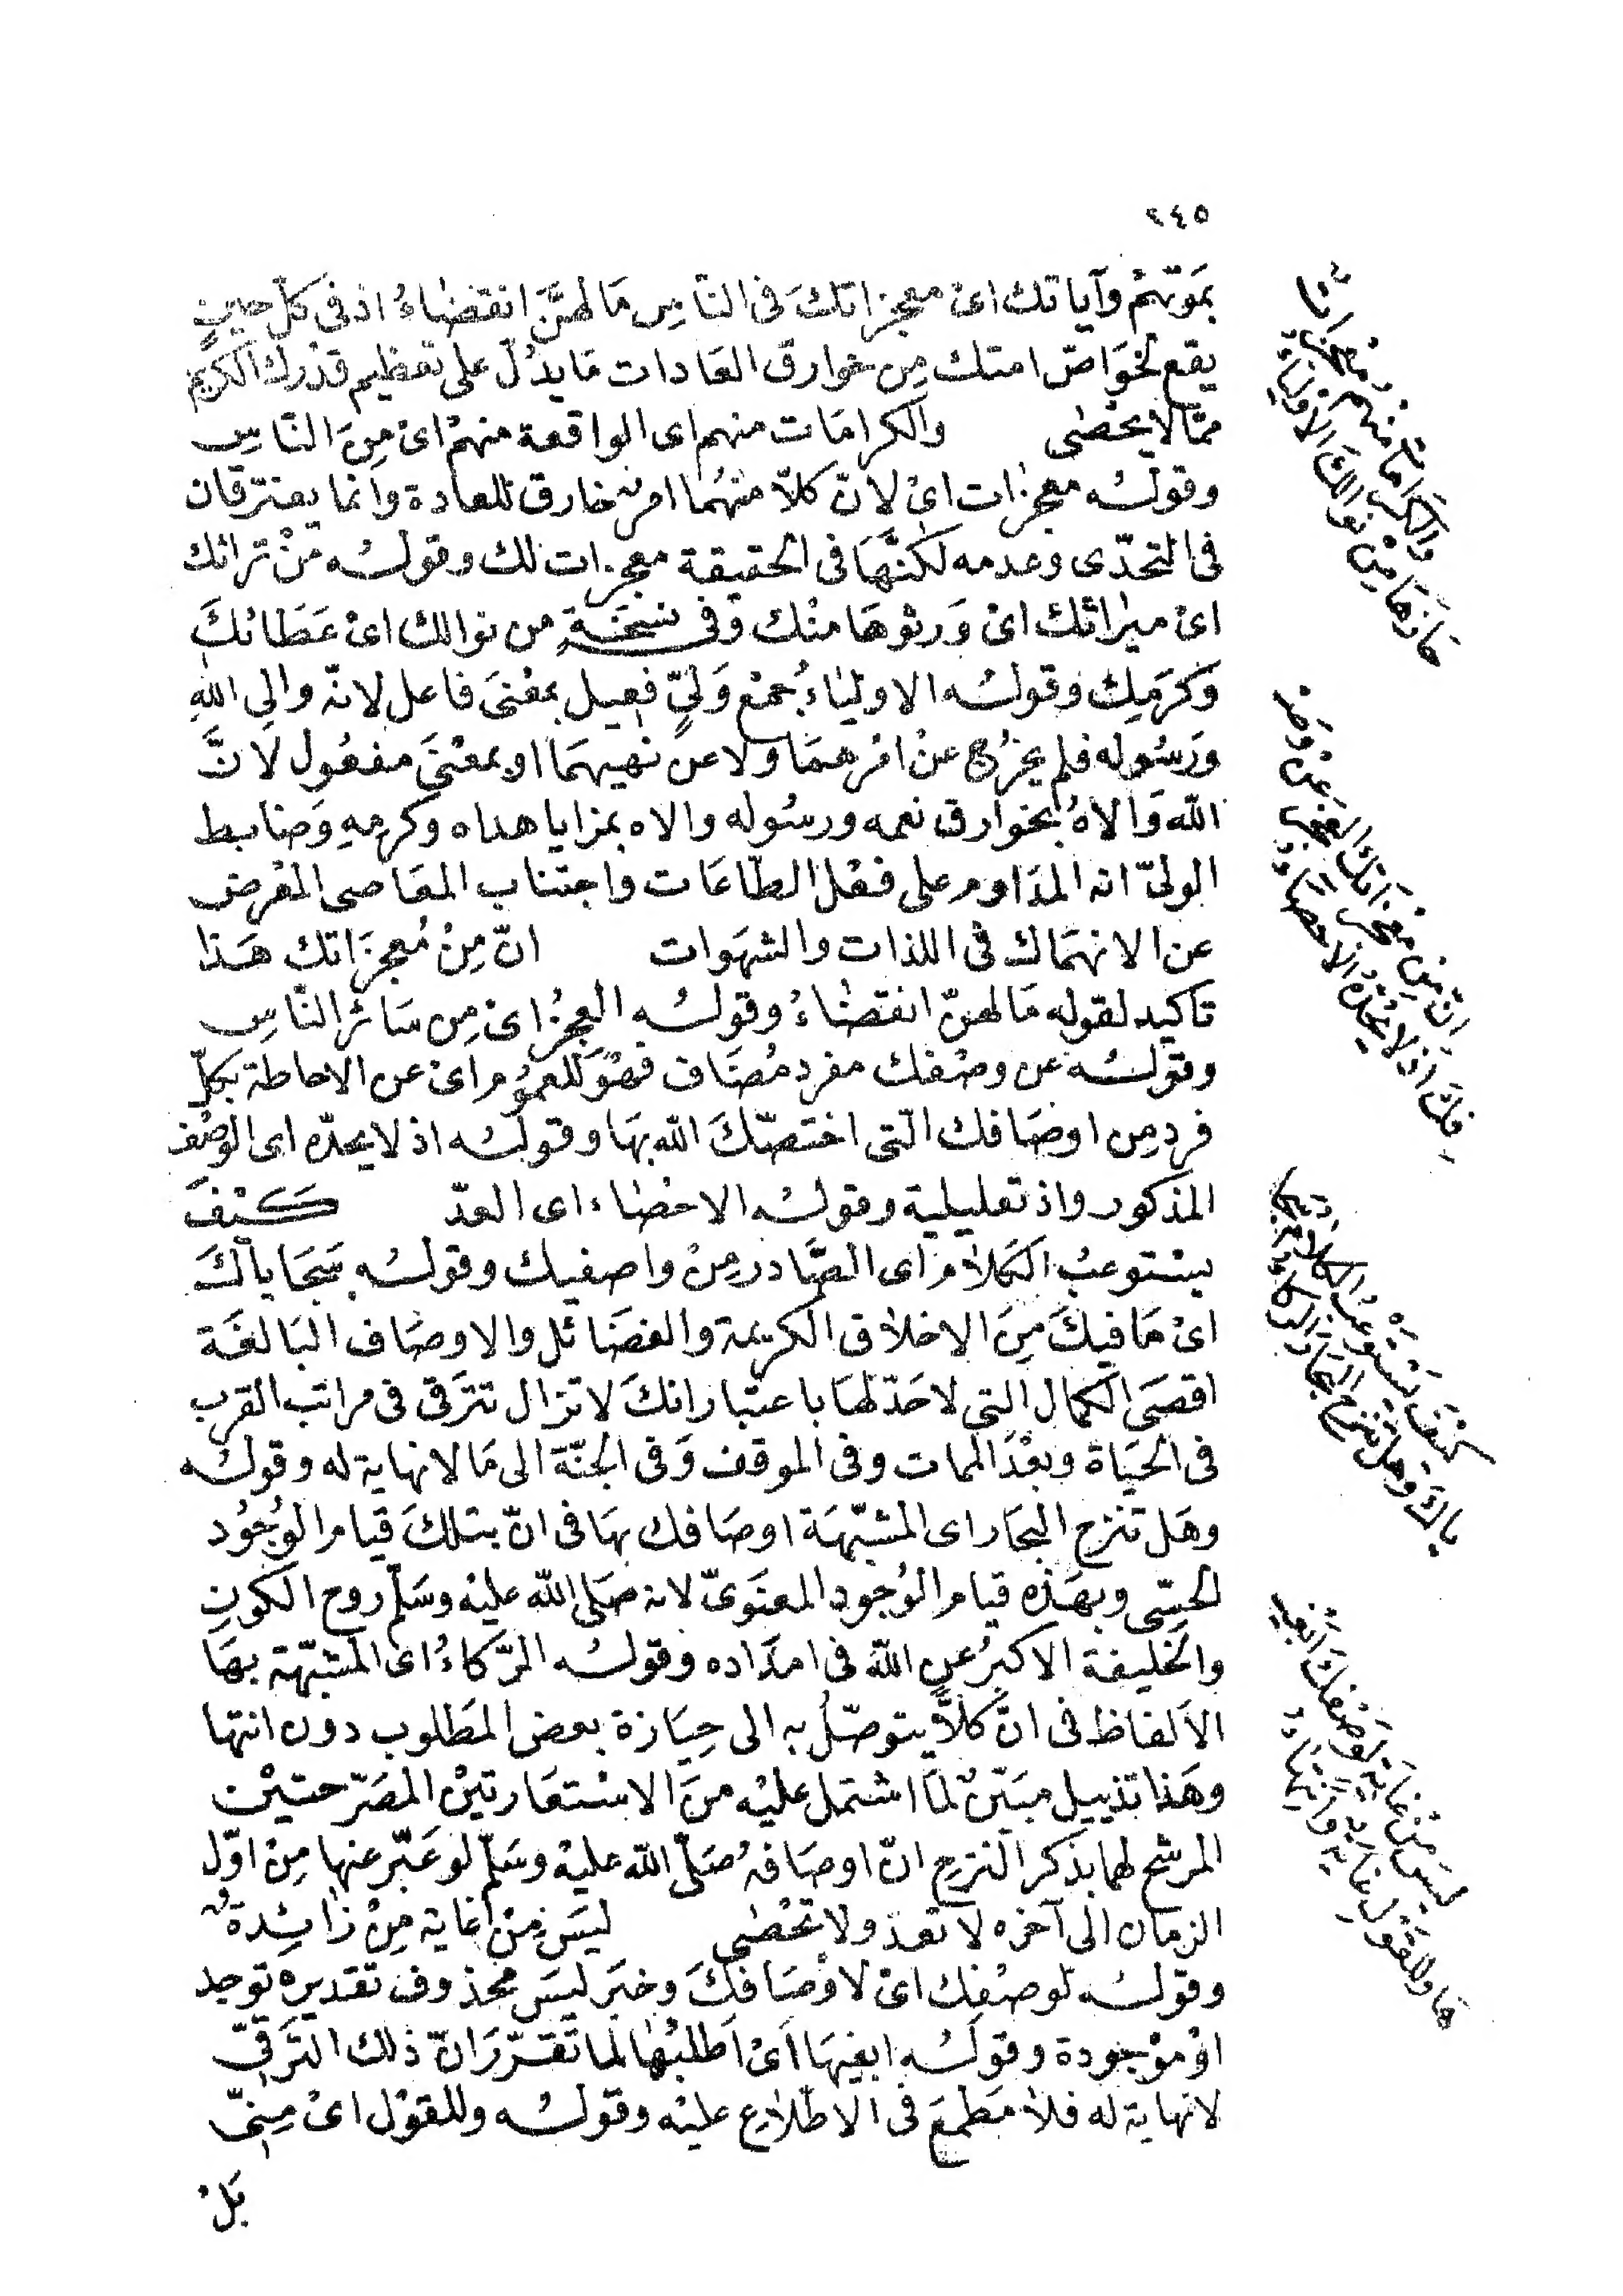 ٢٤٥
بموتهم وآياتك اىْ معجزاتكَ فى النّاسِ مَا لهنَّ انقضاءُ اذ فى كلّ حينٍ
يقع لخوَاصّ امتك مِن خوارق العَادات مَا يدُلّ على تعظيم قدْرك الكريم
ممّا لا يحْصٰى والكرامَات منهم اى الواقعة منهمْ اىْ مِنَ النّاسِ
وقولـُه معجزات اىْ لانّ كلّا منهُما امر خارق للعادة وانما يفترقان
فى التحدّى وعدمه لكنّهَا فى الحقيقة معجزات لك وقولـُه مِنْ تراثك
اىْ ميراثك اىْ وَرثوهَا منْك وَفى نسْخَةٍ من نوالك اىْ عَطَائكَ
وَكرَمِك وقولـُه الاوليَاءُ جمْع وَلىّ فعيل بمعْنىَ فاعل لانّه والى اللهِ
ورَسُوله فلم يخرُج عنْ امْرهمَا ولا عن نهيهمَا او بمعْنىَ مفعُول لانَّ
اللّه وَالاهُ بخوارق نعمه ورسُوله والاه بمزايا هداه وكرمِهِ وَضابط
الولىّ انه المدَاوم على فعْل الطّاعَات واجتناب المعَاصى المعْرض
عن الانهمَاك فى اللذات والشهوات انّ مِنْ مُعجزَاتك هَذا
تاكيد لقولهِ مَا لهنّ انقضَاءُ وقولـُه العجزُ اىْ مِن سَائر النّاسِ
وقولـُه عن وصْفك مفرد مُضَاف فهُوَ للعمُوم اىْ عن الاحاطة بكلّ
فرد مِن اوصَافك الّتى اختصّكَ اللّه بهَا وقولـُه اذ لا يحدّه اى الوصْف
المذكور واذ تعليلية وقولـُه الاحْصَاء اى العدّ كَـيْفَ
يسْتوعبُ الكَلام اى الصَّادر مِنْ واصفيك وقولـُه سَجَاياكَ
اىْ مَا فيكَ مِنَ الاخلاق الكريمة والفضَائل والاوصَاف البَالغَة
اقصَى الكمال التى لا حَدّ لهَا باعتبار انكَ لا تزال تترَقى فى مراتب القرب
فى الحيَاة وبعْدَ الممات وفى الموقف وَفى الجنّة الى مَا لا نهاية له وقولـُه
وهَل تنزح البحَار اى المشبّهَة اوصَافك بهَا فى انّ بتلكَ قيام الوُجُود
الحِسّى وبهَذِه قيام الوُجود المعنَوىّ لانه صَلى اللّه عليْه وسَلّم روح الكونِ
والخليفة الاكبرُ عن اللّه فى امدَاده وقولـُه الرّكاءُ اى المشبّهة بهَا
الالفاظ فى انَّ كلاًّ يتوصّلُ به الى حِيَازة بعض المَطلوب دون انتها
وهَذا تذييل مبَيّنٌ لمَا اشتمل عليْه منَ الاسْتعَارتيْن المصَرّحتيْن
المرشح لهما بذكر النزح انّ اوصَافهُ صَلّى اللّه عليْه وسَلّم لو عَبّر عنها مِنْ اوّل
الزمان الى آخره لا تعدّ ولا تحْصٰى ليسَ مِنْ غاية مِنْ زائِدةٌ
وقولـُه لوصْفِك اىْ لاوْصَافكَ وخبَر ليسَ محذوف تقديره توجد
اوْ موْجودة وقولـُه ابغيهَا اىْ اَطلبُهَا لما تقـرّرَ انّ ذلك الترَقىّ
لا نهاية له فلا مَطمَعَ فى الاطّلاع عليْه وقولـُه وللقوْل اىْ مِنىّ
بَلْ
والكرامات منهم معجزات
حازها من نوالك الاولياء
انّ من معجزاتك العجز عن وصـ
ـفك اذ لا يحدّه الاحصاء
كيف يستوعب الكلام سجا
ياك وهل تنزح البحار الركاء
ليس من غاية لوصفك ابغيـ
ـها وللقول غاية وانتهاء